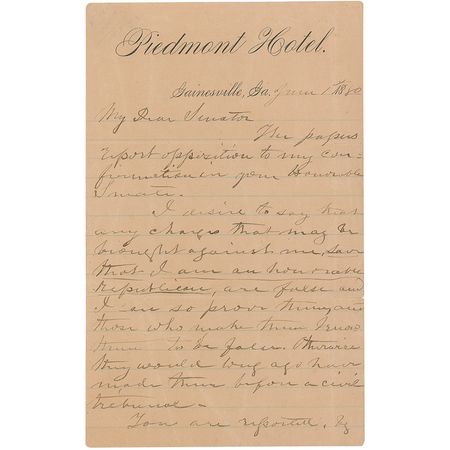 Piedmont Hotel.
Gainesville, Ga. June 1st 1880
My Dear Senator
The papers
report opposition to my con-
firmation in your Honorable
Senate.
I desire to say that
any charges that may be
brought against me, save
that I am an honorable
Republican, are false and
I can so prove them, and
those who make them know
them to be false. Otherwise
they would long ago have
made them before a civil
tribunal -
You are reported, by